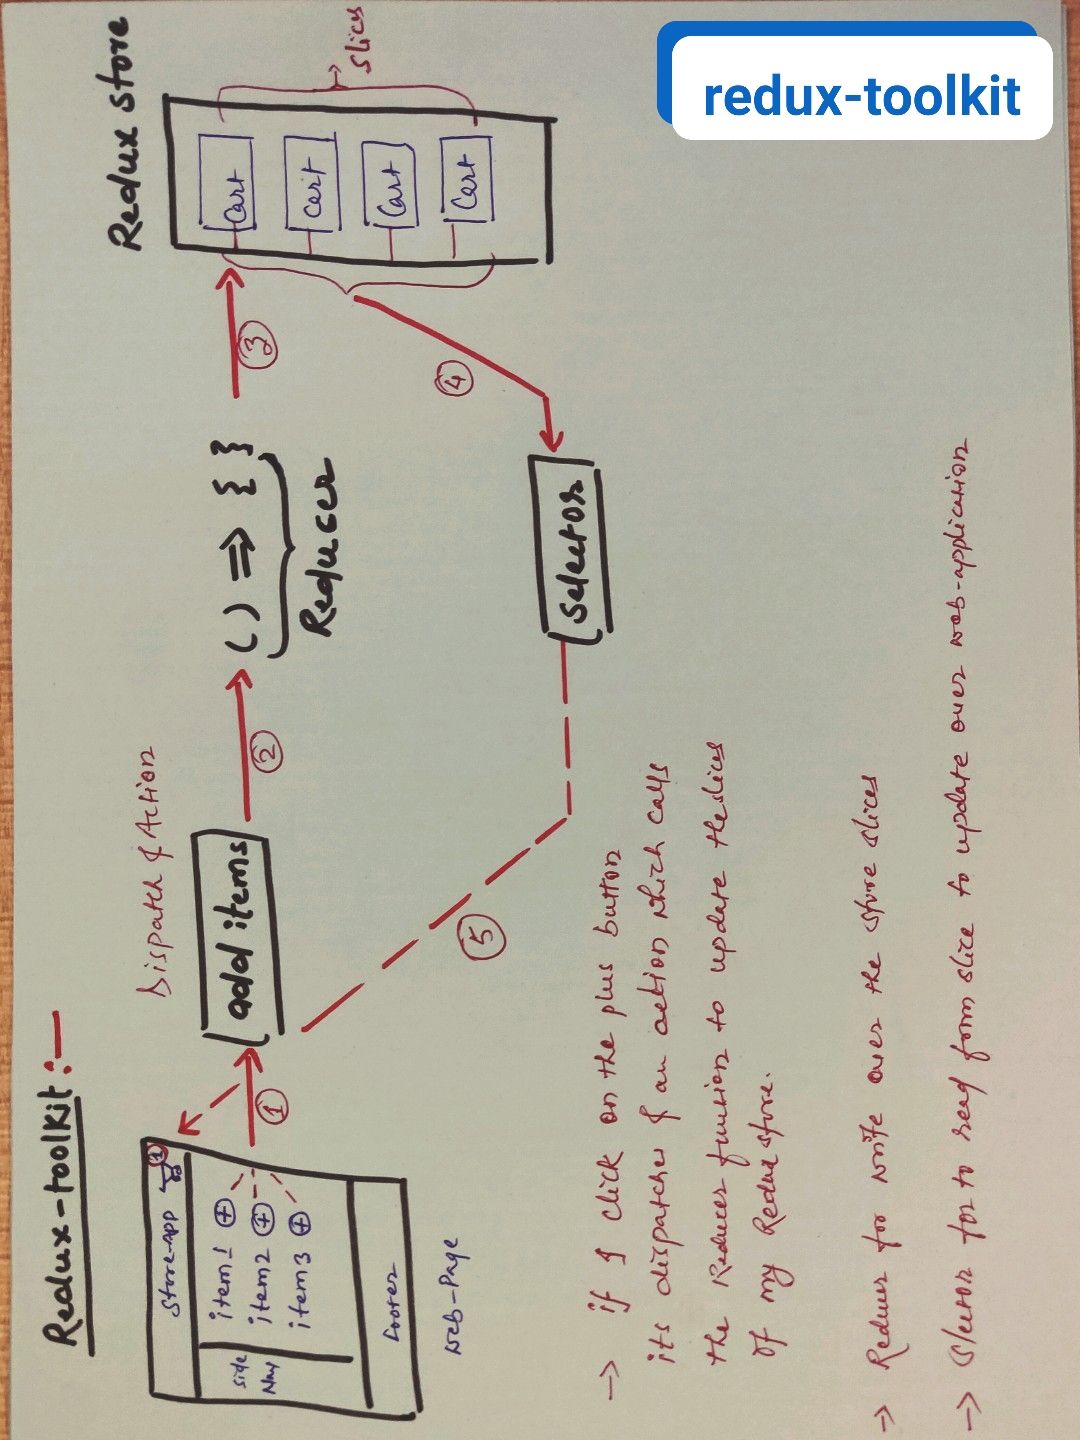 redux-toolkit
Redux-toolkit:-
Redux store
slices
Cart
Cart
Cart
Cart
3
4
() => { }
Reducer
Selector
2
Dispatch of Action
add items
5
1
1
Store-APP
item1 +
item2 +
item3 +
side
Nav
footer
Web-Page
-> if I click on the plus button
its dispatches of an action which calls
the Reducer function to update the slices
of my Redux store.
-> Reducer for write over the store slices
-> Slector for to read form slice to update over web-application